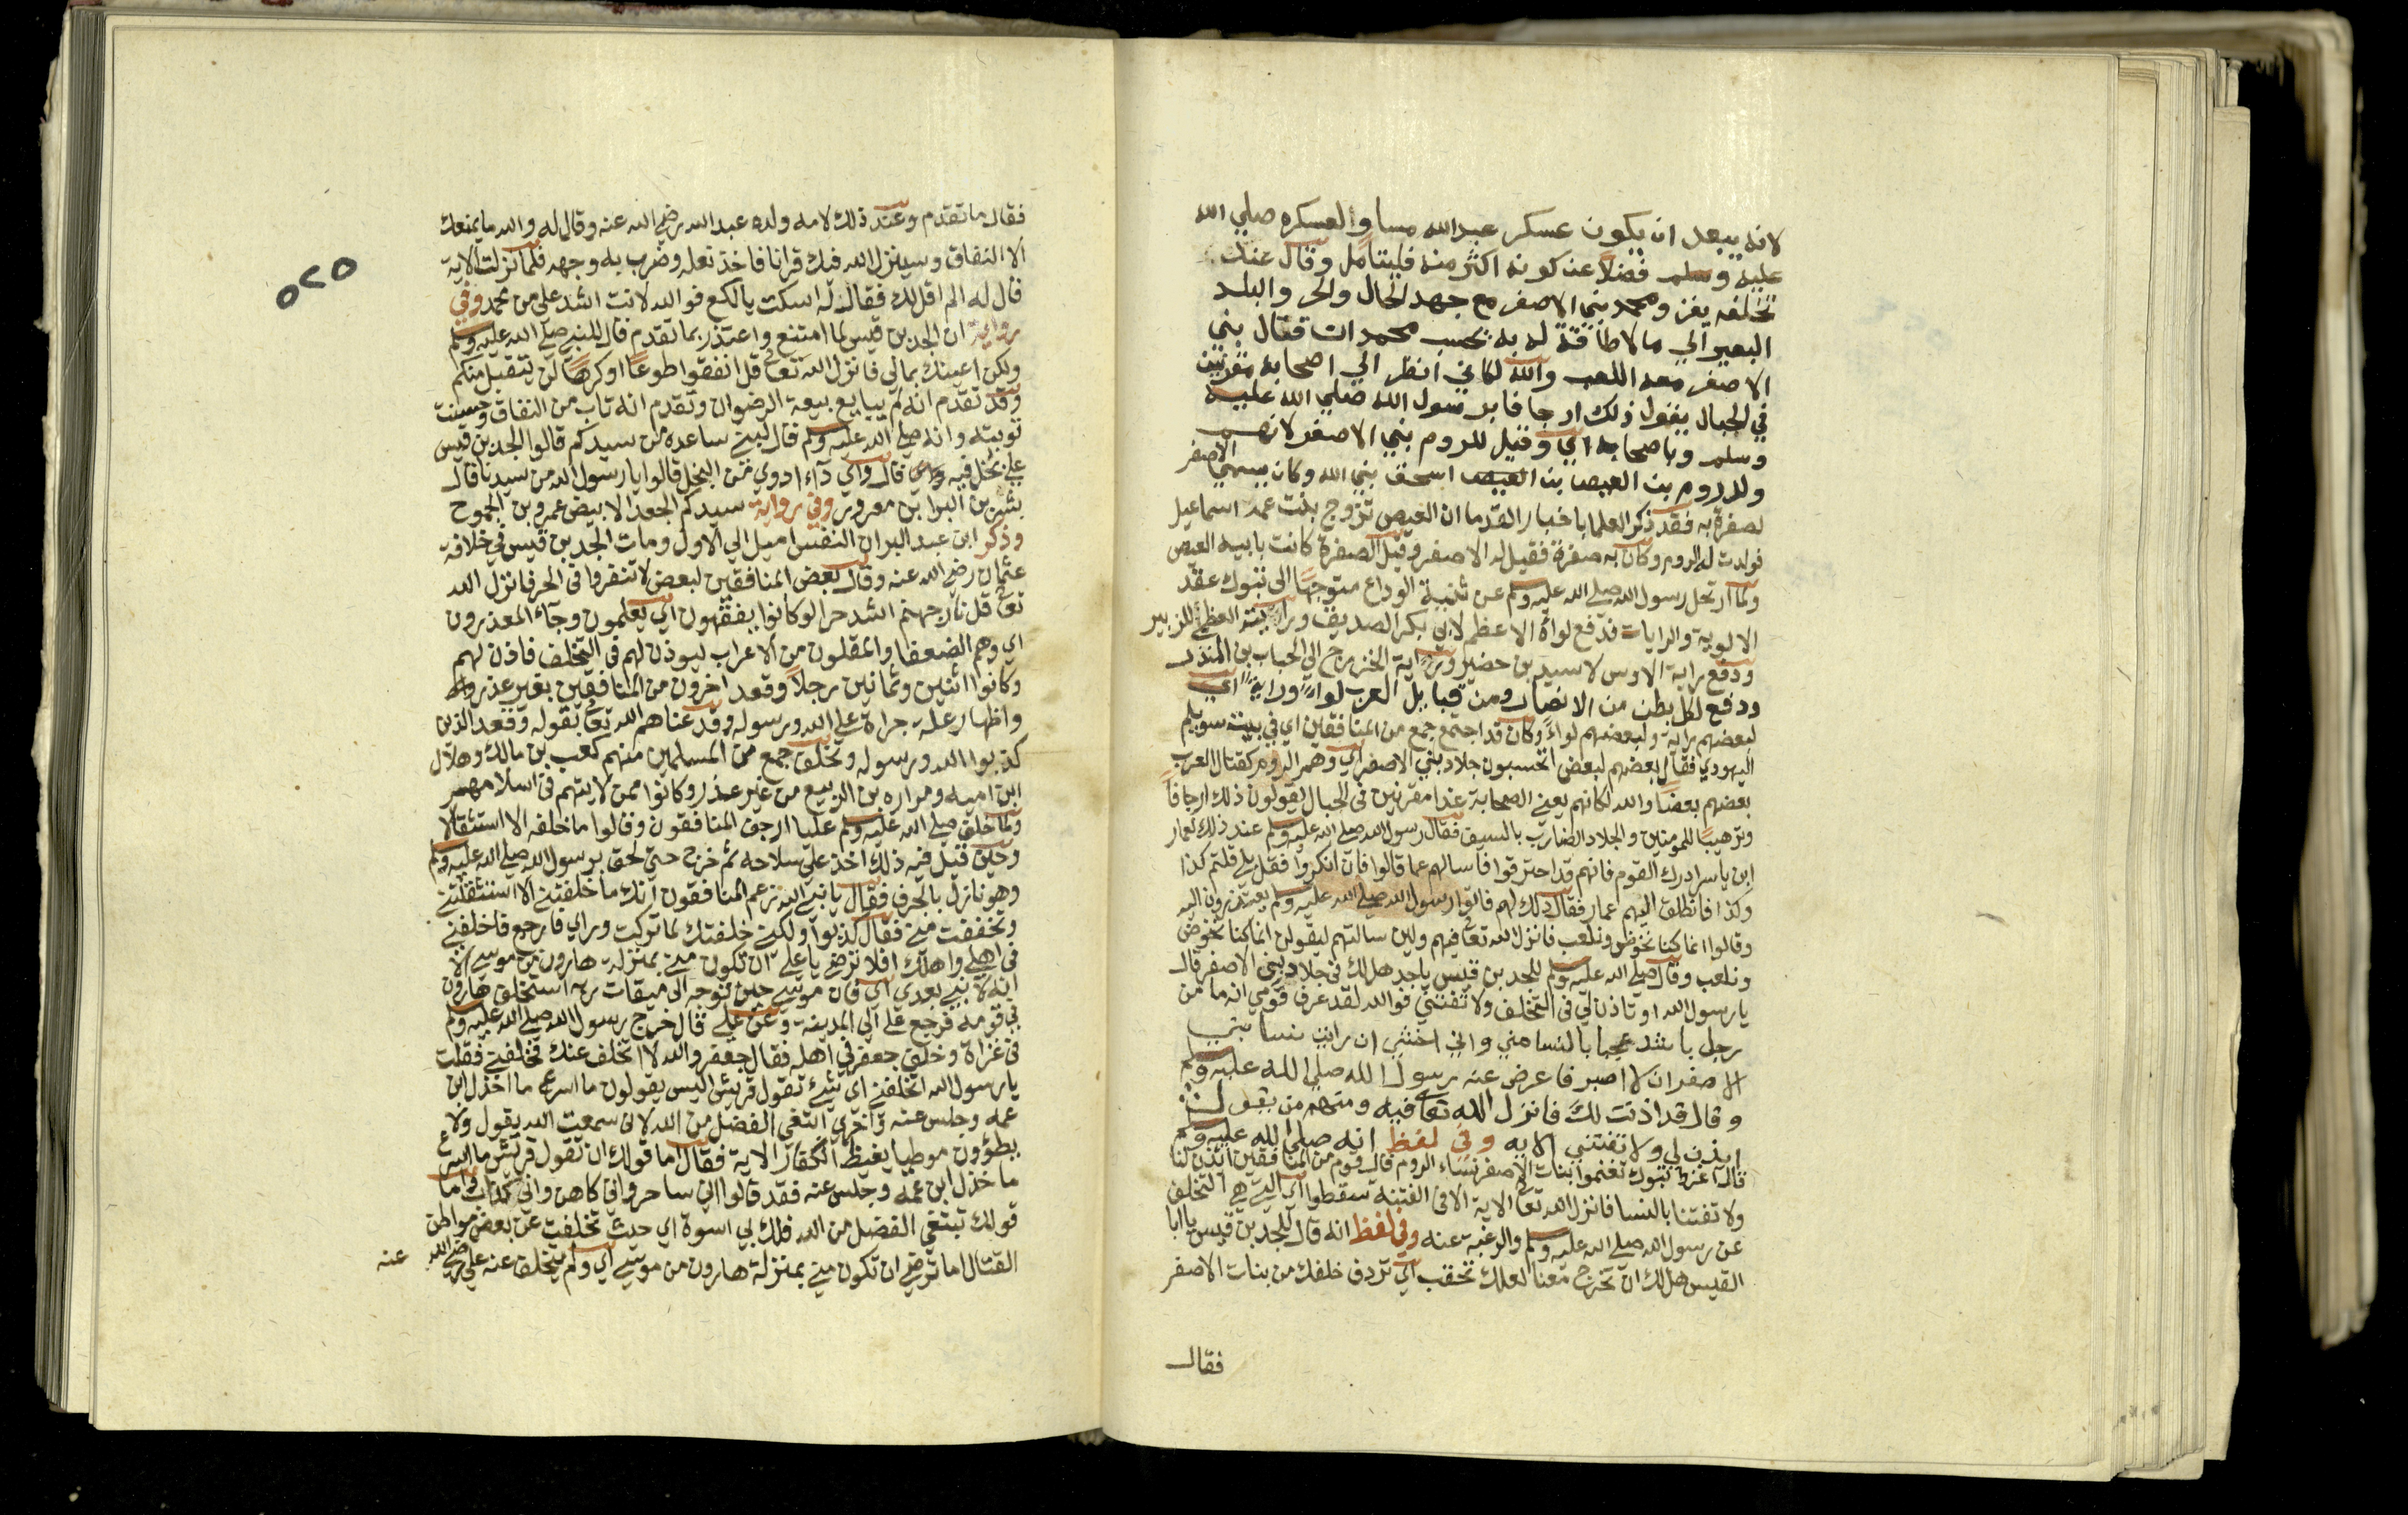 لانه يبعد ان يكون عسكر عبدالله مساو العسكره صلي الله
عليه وسلم فضلا عن كونه اكثر منه فليتامل وقال عند
تخلفه يغز ومحمد بني الاصفر مع جهد الحال والحر والبلد
البعير الي ما لا طاقة له به بحسب محمد ان قتال بني
الاصفر معه اللعب والله لكاني انظر الي اصحابه مقرنين
في الحبال يقول ذلك ارجافا برسول الله صلي الله عليه
وسلم وباصحابه اي وقيل للروم بني الاصفر لانهم
ولد روم بن العيص بن العيص اسحق بني الله وكان يسمي الاصفر
لصفرة به فقد ذكر العلما باخبار القدما ان العيص تزوج بنت عمه اسماعيل
فولدت له الروم وكان به صفرة فقيل له الاصفر وقيل الصفرة كانت بابيه العيص
ولما ارتحل رسول الله صلي الله عليه وسلم عن ثنية الوداع متوجها الي تبوك عقد
الالوية والرايات فدفع لواه الاعظم لابي بكر الصديق ورايته العظمي للزبير
ودفع راية الاوس لاسيد بن حضير وراية الخزرج الي الحباب بن المنذر
ودفع لكل بطن من الانصار ومن قبايل العرب لواء وراية اي
لبعضهم راية ولبعضهم لواء وكان قد اجتمع جمع من المنافقين اي في بيت سويلم
اليهودي فقال بعضهم لبعض اتحسبون جلاد بني الاصفر اي وهم الروم كقتال العرب
بعضهم بعضا والله لكانهم يعني الصحابة غدا مقرنين في الحبال يقولون ذلك ارجافا
وترهيبا للمومنين والجلاد الضارب بالسيف فقال رسول الله صلي الله عليه وسلم عند ذلك لعمار
ابن ياسر ادرك القوم فانهم قد احترقوا فاسالهم عما قالوا فان انكروا فقل بلي قلتم كذا
وكذا فانطلق اليهم عمار فقال ذلك لهم فاتوا رسول الله صلي الله عليه وسلم يعتذرون اليه
وقالوا انما كنا نخوض ونلعب فانزل الله تعالي فيهم ولين سالتهم ليقولن انما كنا نخوض
ونلعب وقال صلي الله عليه وسلم للجد بن قيس يا جد هل لك في جلاد بني الاصفر قال
يا رسول الله او تاذن لي في التخلف ولا تفتني فوالله لقد عرف قومي انه ما من
رجل باشد عجبا بالنسا مني واني اخشي ان رايت نسا بني
الاصفر ان لا اصبر فاعرض عنه رسول الله صلي الله عليه وسلم
وقال قد اذنت لك فانزل الله تعالي فيه ومنهم من يقول
ايذن لي ولا تفتني الايه وفي لفظ انه صلي الله عليه وسلم
قال اغزوا تبوك تغنموا بنات الاصفر نساء الروم قال قوم من المنافقين ايذن لنا
ولا تفتنا بالنسا فانزل الله تعالي الاية الا في الفتنة سقطوا اي التي هي التخلف
عن رسول الله صلي الله عليه وسلم والرغبة عنه وفي لفظ انه قال للجد بن قيس يا ابا
القيس هل لك ان تخرج معنا لعلك تحقب اي تردف خلفك من بنات الاصفر
فقال
٥٢٥
فقال ما تقدم وعند ذلك لامه ولده عبد الله رضي الله عنه وقال له والله ما يمنعك
الا النفاق وسينزل الله فيك قرانا فاخذ نعله وضرب به وجهه فلما نزلت الاية
قال له الم اقل لك فقال له اسكت يا لكع فوالله لانت اشد علي من محمد وفي
رواية ان الجد بن قيس لما امتنع واعتذر بما تقدم قال للنبي صلي الله عليه وسلم
ولكن اعينك بمالي فانزل الله تعالي قل انفقوا طوعا او كرها لن يتقبل منكم
وقد تقدم انه لم يبايع بيعة الرضوان وتقدم انه تاب من النفاق وحسنت
توبته وانه صلي الله عليه وسلم قال لبني ساعده من سيدكم قالوا الجد بن قيس
علي بخل فيه قال واي داء ادوي من البخل قالوا يا رسول الله من سيدنا قال
بشر بن البرا بن معرور وفي رواية سيدكم الجعد الابيض عمرو بن الجموح
وذكر ابن عبد البر ان النفس اميل الي الاول ومات الجد بن قيس في خلافة
عثمان رضي الله عنه وقال بعض المنافقين لبعض لا تنفروا في الحر فانزل الله
تعالي قل نار جهنم اشد حرا لو كانوا يفقهون اي يعلمون وجاء المعذرون
اي وهم الضعفا والمقلون من الاعراب ليوذن لهم في التخلف فاذن لهم
وكانوا اثنين وثمانين رجلا وقعد اخرون من المنافقين بغير عذر
واظهار علة جراة علي الله ورسوله وقد عناهم الله تعالي بقوله وقعد الذين
كذبوا الله ورسوله وتخلف جمع من المسلمين منهم كعب بن مالك وهلال
ابن اميه ومراره بن الربيع من غير عذر وكانوا ممن لا يتهم في اسلامهم
ولما خلف صلي الله عليه وسلم عليا ارجف المنافقون وقالوا ما خلفه الا استثقالا
وحين قيل فيه ذلك اخذ علي سلاحه ثم خرج حتي لحق برسول الله صلي الله عليه وسلم
وهو نازل بالجرف فقال يا نبي الله زعم المنافقون انك ما خلفتني الا استثقلتني
وتخففت مني فقال كذبوا ولكني خلفتك لما تركت وراي فارجع فاخلفني
في اهلي واهلك افلا ترضي يا علي ان تكون مني بمنزلة هارون من موسي الا
انه لا نبي بعدي اي فان موسي حين توجه الي ميقات ربه استخلف هارون
في قومه فرجع علي الي المدينة وعن علي قال خرج رسول الله صلي الله عليه وسلم
في غزاة وخلف جعفر في اهله فقال جعفر والله لا اتخلف عنك فخلفني فقلت
يا رسول الله اتخلفني اي شيء تقول قريش اليس يقولون ما اسرع ما اخذل ابن
عمه وجلس عنه واخري ابتغي الفضل من الله لاني سمعت الله يقول ولا
يطؤون موطيا يغيظ الكفار الاية فقال اما قولك ان تقول قريش ما اسرع
ما خذل ابن عمه وجلس عنه فقد قالوا اني ساحر واني كاهن واني كذاب واما
قولك تبتغي الفضل من الله فلك بي اسوة اي حيث تخلفت عن بعض مواطن
القتال اما ترضي ان تكون مني بمنزلة هارون من موسي اي ولم يتخلف عنه علي رضي الله عنه